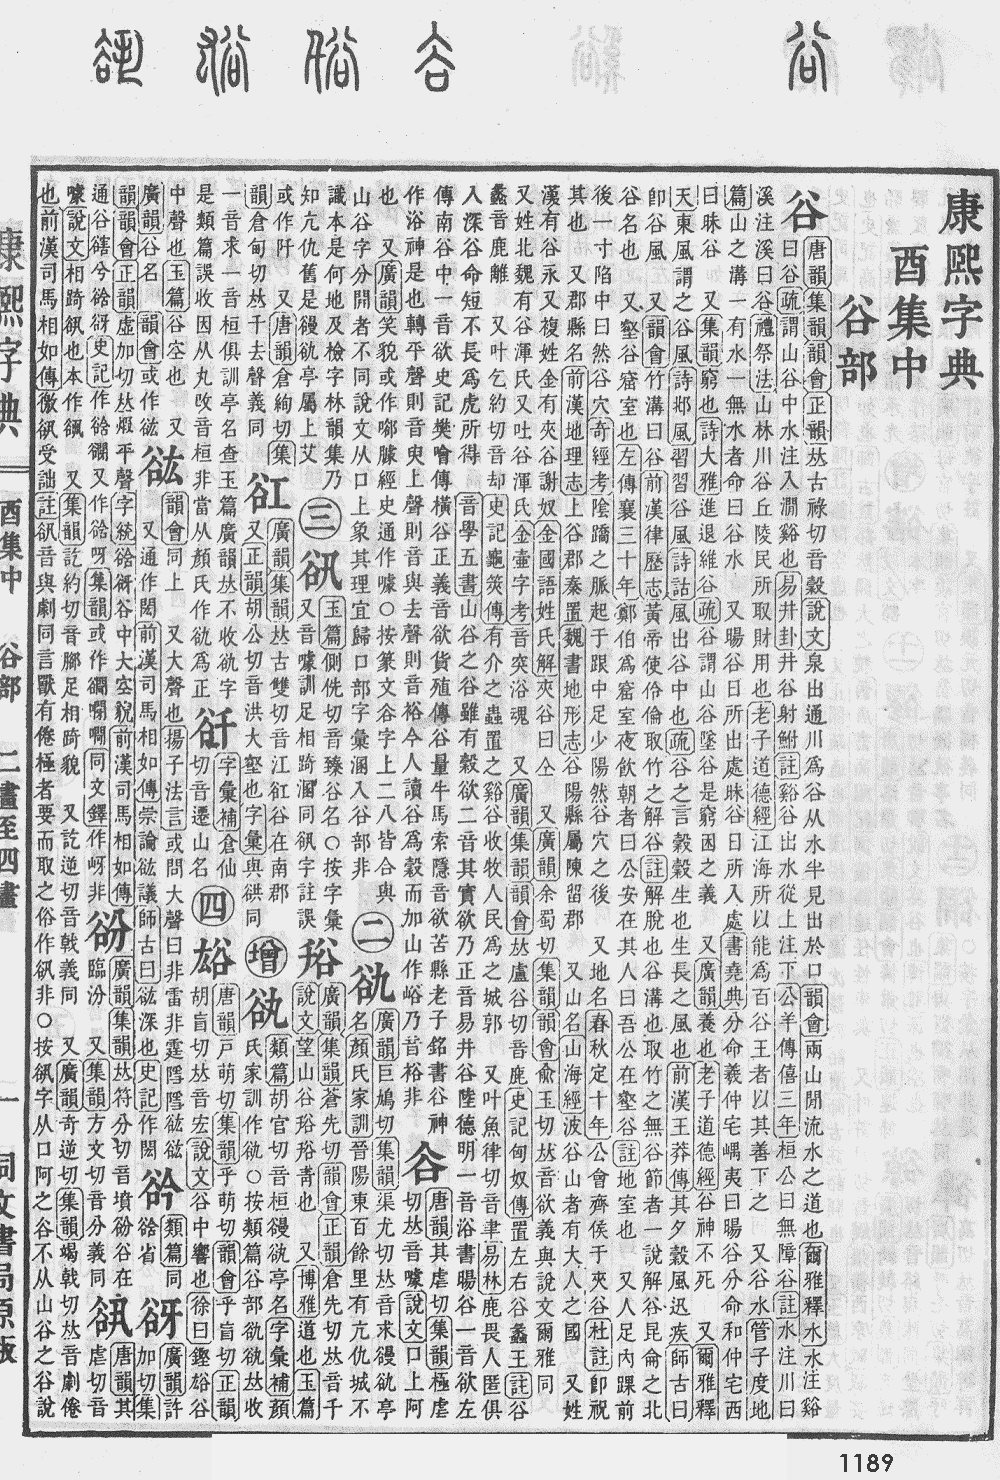 康熙字典
酉集中
谷部
谷 唐韻集韻韻會正韻𠀤古祿切音穀說文泉出通川爲谷从水半見出於口韻會兩山閒流水之道也爾雅釋水水注谿
曰谷疏謂山谷中水注入澗谿也易井卦井谷射鮒註谿谷出水從上注下公羊傳僖三年桓公曰無障谷註水注川曰
溪注溪曰谷禮祭法山林川谷丘陵民所取財用也老子道德經江海所以能爲百谷王者以其善下之 又谷水管子度地
篇山之溝一有水一無水者命曰谷水 又暘谷日所出處昧谷日所入處書堯典分命羲仲宅嵎夷曰暘谷分命和仲宅西
曰昧谷 又集韻窮也詩大雅進退維谷疏谷謂山谷墜谷是窮困之義 又廣韻養也老子道德經谷神不死 又爾雅釋
天東風謂之谷風詩邶風習習谷風詩詁風出谷中也疏谷之言穀穀生也生長之風也前漢王莽傳其夕穀風迅疾師古曰
卽谷風 又韻會竹溝曰谷前漢律歷志黃帝使伶倫取竹之解谷註解脫也谷溝也取竹之無谷節者一說解谷昆侖之北
谷名也 又壑谷窟室也左傳襄三十年鄭伯爲窟室夜飲朝者曰公安在其人曰吾公在壑谷註地室也 又人足內踝前
後一寸陷中曰然谷穴奇經考陰蹻之脈起于跟中足少陽然谷穴之後 又地名春秋定十年公會齊侯于夾谷杜註卽祝
其也 又郡縣名前漢地理志上谷郡秦置魏書地形志谷陽縣屬陳留郡 又山名山海經波谷山者有大人之國 又姓
漢有谷永又複姓金有夾谷謝奴金國語姓氏解夾谷曰仝 又廣韻余蜀切集韻韻會俞玉切𠀤音欲義與說文爾雅同
又姓北魏有谷渾氏又吐谷渾氏金壷字考音突浴魂 又廣韻集韻韻會𠀤盧谷切音鹿史記匈奴傳置左右谷蠡王註谷
蠡音鹿離 又叶乞約切音却史記龜筴傳有介之蟲置之谿谷收牧人民爲之城郭 又叶魚律切音聿易林鹿畏人匿俱
入深谷命短不長爲虎所得 音學五書山谷之谷雖有穀欲二音其實欲乃正音易井谷陸德明一音浴書暘谷一音欲左
傳南谷中一音欲史記樊噲傳橫谷正義音欲貨殖傳谷量牛馬索隱音欲苦縣老子銘書谷神
作浴神是也轉平聲則音臾上聲則音與去聲則音裕今人讀谷爲穀而加山作峪乃音裕非 𧮫 唐韻其虐切集韻極虐
切𠀤音噱說文口上阿
也 又廣韻笑貌或作㖸臄經史通作噱○按篆文𧮫字上二八皆合與
山谷字分開者不同說文从口上象其理宜歸口部字彙溷入谷部非
二 𧮬 廣韻巨鳩切集韻渠尤切𠀤音求谩𧮬亭
名顏氏家訓晉陽東百餘里有亢仇城不
識本是何地及檢字林韻集乃
知亢仇舊是谩𧮬亭屬上艾
三 𧮭 玉篇側侁切音臻谷名○按字彙
又音噱訓足相踦溷同𧮭字註誤
𧮱 廣韻集韻蒼先切韻會正韻倉先切𠀤音千
說文望山谷𧮱𧮱靑也 又博雅道也玉篇
或作阡 又唐韻倉絢切集
韻倉甸切𠀤千去聲義同
𧮰 廣韻集韻𠀤古雙切音江𧮰谷在南郡
又正韻胡公切音洪大壑也字彙與谼同
增 𧮬 類篇胡官切音桓谩𧮬亭名字彙補顏
氏家訓作𧮬○按類篇谷部𧮬𧮬𠀤收
一音求一音桓俱訓亭名查玉篇廣韻𠀤不收𧮬字
是類篇誤收因从丸㕦音桓非當从顏氏作𧮬爲正
谸 字彙補倉仙
切音遷山名
四 谹 唐韻戸萌切集韻乎萌切韻會乎盲切正韻
胡盲切𠀤音宏說文谷中響也徐曰鏗谹谷
中聲也玉篇谷空也 又大聲也揚子法言或問大聲曰非雷非霆隱隱谹谹
廣韻谷名 韻會或作谹
谹 韻會同上
又通作閎前漢司馬相如傳崇論谹議師古曰谹深也史記作閎
谽 類篇同
谽省
谺 廣韻許
加切集
韻韻會正韻虛加切𠀤煆平聲字統谽谺谷中大空貌前漢司馬相如傳
通谷豁兮谽谺史記作谽㵎又作谽呀集韻或作㵎㗿㗿同文鐸作岈非
谺 廣韻集韻𠀤符分切音墳谺谷在
臨汾 又集韻方文切音分義同
𧮭 唐韻其
虐切音
噱說文相踦𧮭也本作㕁 又集韻訖約切音腳足相踦貌 又訖逆切音戟義同 又廣韻奇逆切集韻竭戟切𠀤音劇倦
也前漢司馬相如傳徼𧮭受詘註𧮭音與劇同言獸有倦極者要而取之俗作𧮭非○按𧮭字从口阿之谷不从山谷之谷說
康熙字典
酉集中 谷部 二畫至四畫
一 同文書局原版
1189